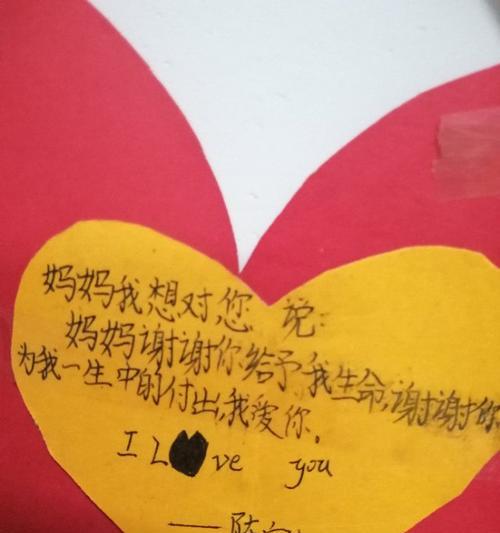 妈妈我想对您 说:
妈妈谢谢你给予我生命,谢谢你
为我一生中的付出,我爱你。
I L ve you
——